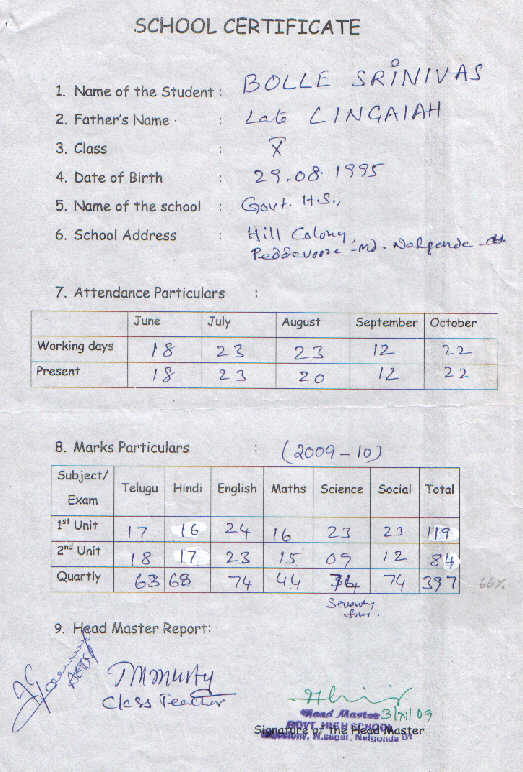 SCHOOL CERTIFICATE
1. Name of the Student : BOLLE SRINIVAS
2. Father's Name : Late LINGAIAH
3. Class : X
4. Date of Birth : 29.08.1995
5. Name of the school : Govt. H.S.,
6. School Address : Hill Colony,
7. Attendance Particulars :
June July August September October
Working days 18 23 23 12 22
Present 18 23 20 12 22
8. Marks Particulars : (2009-10)
Subject/ Exam Telugu Hindi English Maths Science Social Total
1st Unit 17 16 24 16 23 23 119
2nd Unit 18 17 23 15 09 12 84
Quartly 63 68 74 44 74 74 397 66%
Seventy four.
9. Head Master Report:
Class Teacher
Head Master 3/11/09
GOVT. HIGH SCHOOL
Signature of the Head Master
N.sagar, Nalgonda Dt